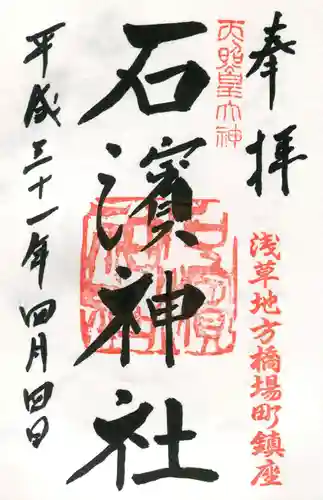 奉拝
浅草地方橋場町鎮座
天照皇大神
石濱神社
平成三十一年四月四日